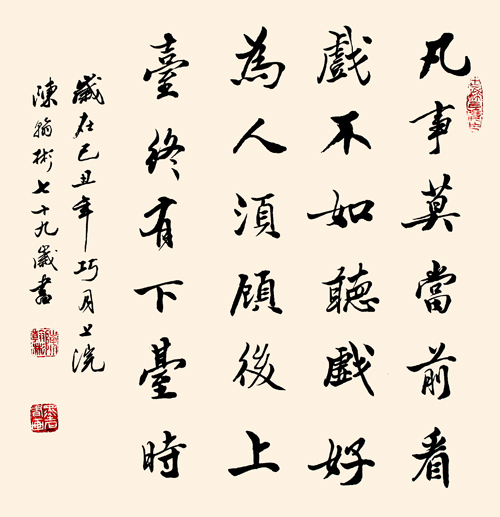 凡事莫當前看
戲不如聽戲好
為人須顧後上
臺終有下臺時
歲在己丑年巧月上浣
陳翰彬七十九歲書